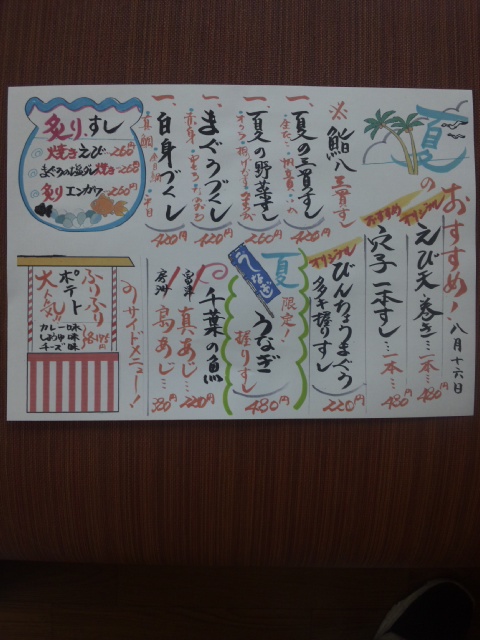 夏のおすすめ!
八月十六日
おすすめ
オリジナル
えび天巻き…一本…480円
穴子一本すし…一本…480円
※鮨八三貫すし
一、夏の三貫すし
420円
一、夏の野菜すし
260円
一、まぐろづくし
赤身
420円
一、白身づくし
真鯛
420円
オリジナル
びんちょうまぐろ
タタキ握りすし
220円
うなぎ
夏限定!
うなぎ
握りすし
480円
千葉の魚
富津真あじ…220円
房州島あじ…320円
炙りすし
焼きえび…260円
焼き…260円
炙りエンガワ…260円
のサイドメニュー!
ふりふり
ポテト
大人気!
カレー味
しょうゆ味
チーズ味
各195円